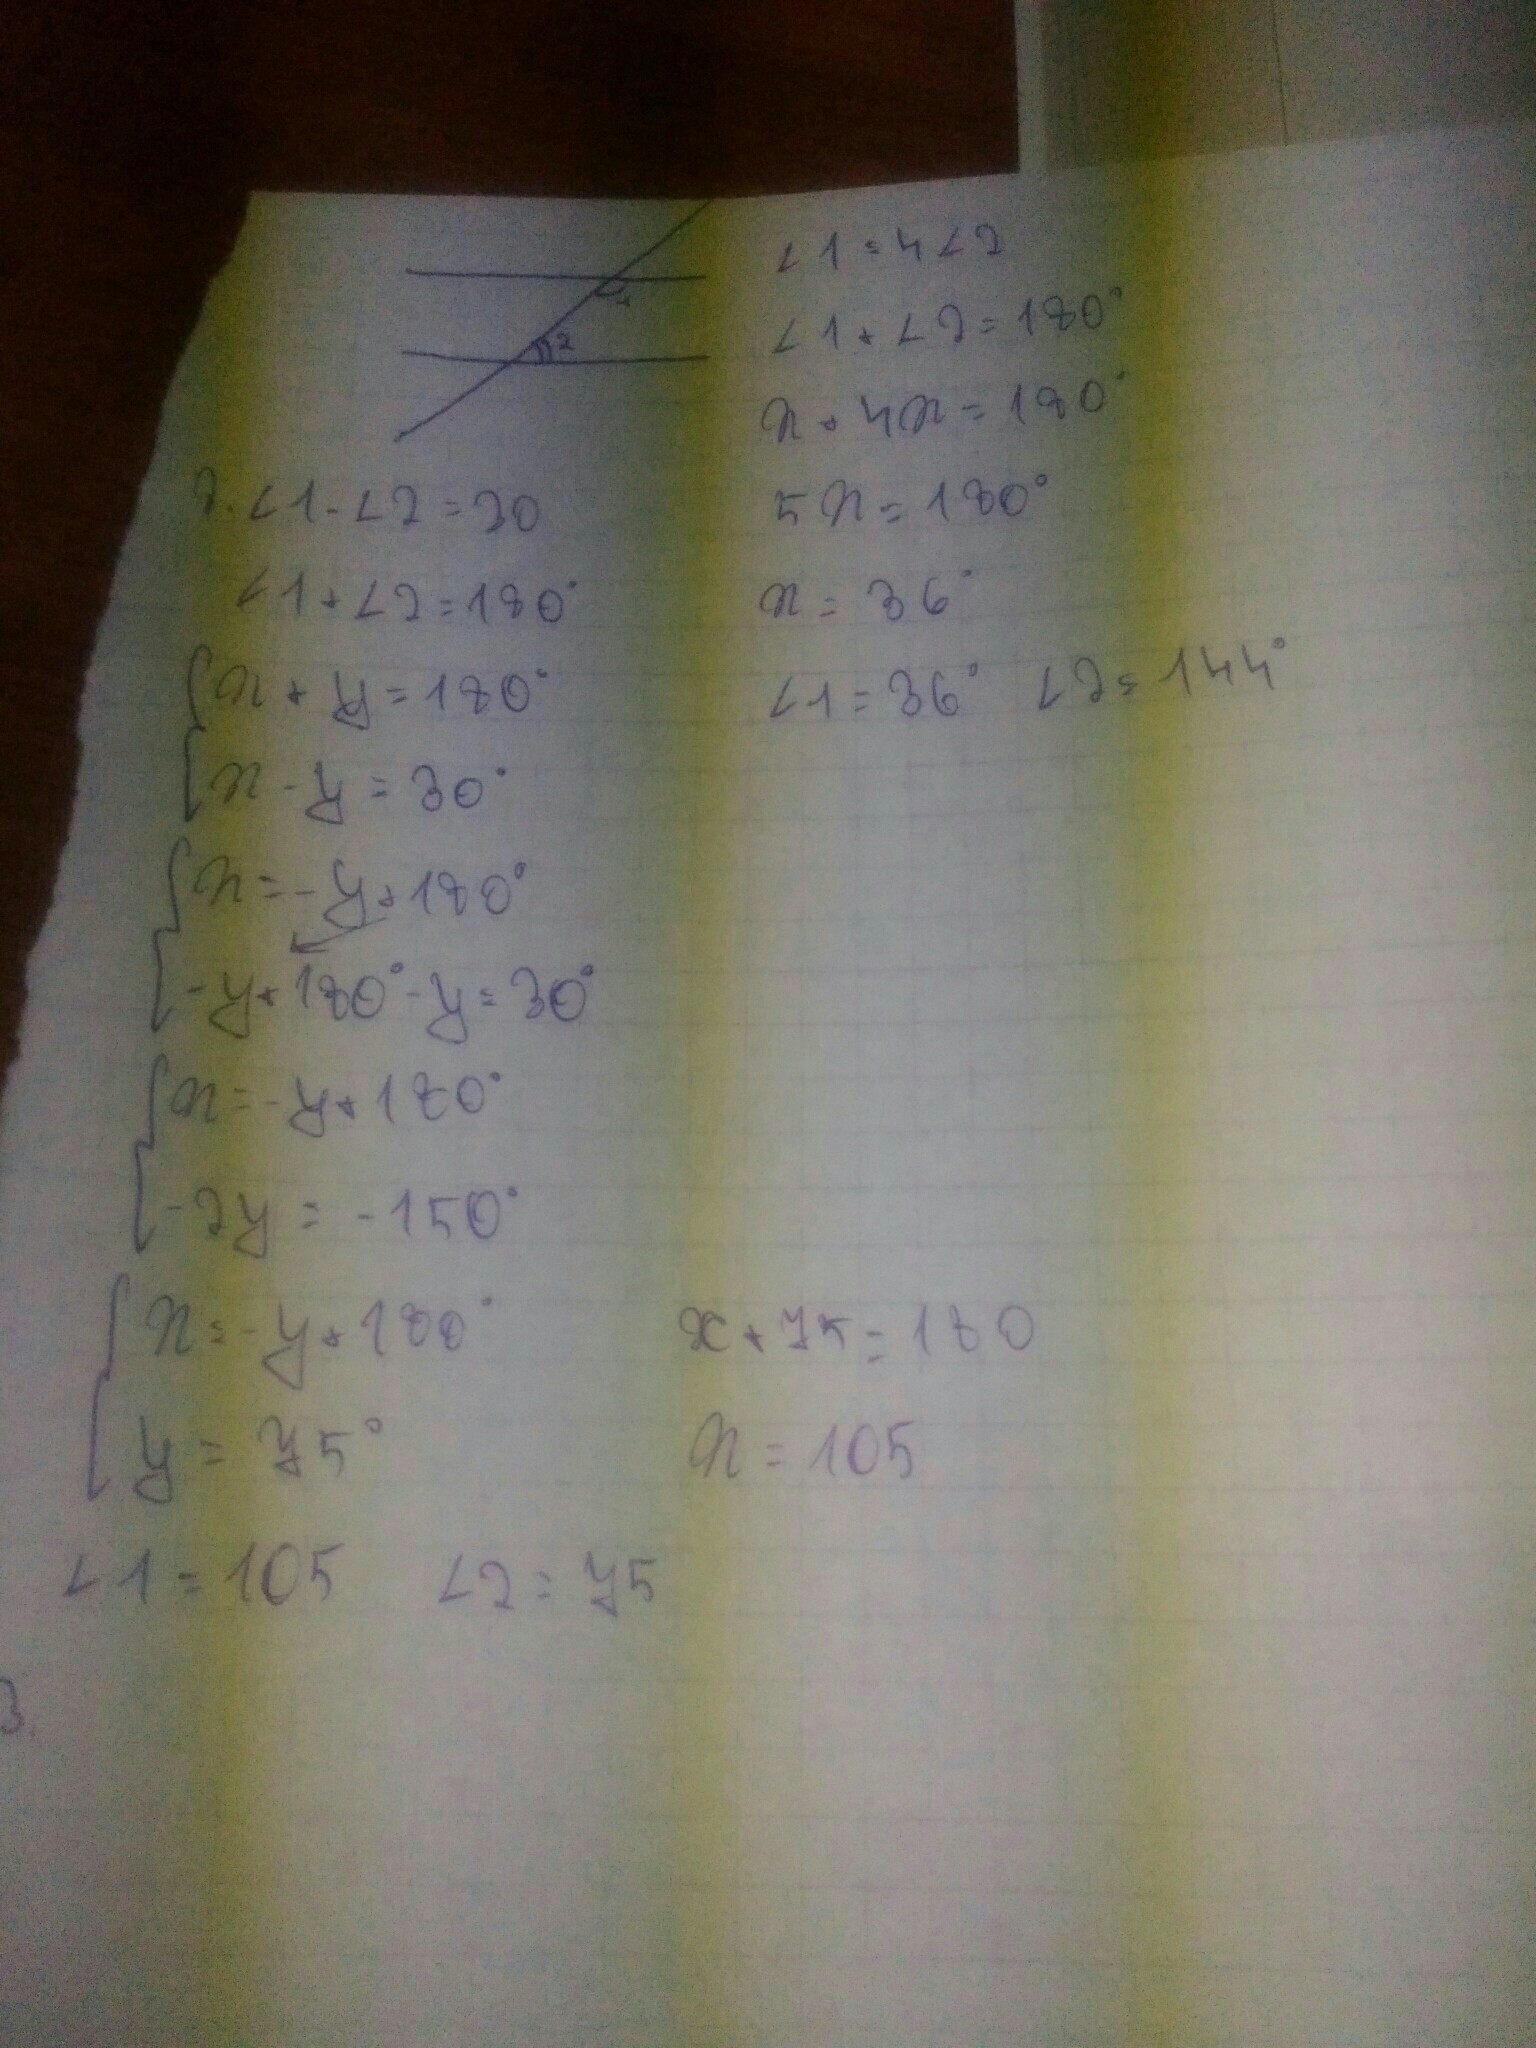 1
2
∠1=4∠2
∠1+∠2=180°
x+4x=180°
5x=180°
x=36°
∠1=36° ∠2=144°
2. ∠1-∠2=30
∠1+∠2=180°
x+y=180°
x-y=30°
x=-y+180°
-y+180°-y=30°
x=-y+180°
-2y=-150°
x=-y+180°
y=75°
x+75=180
x=105
∠1=105 ∠2=75
3.